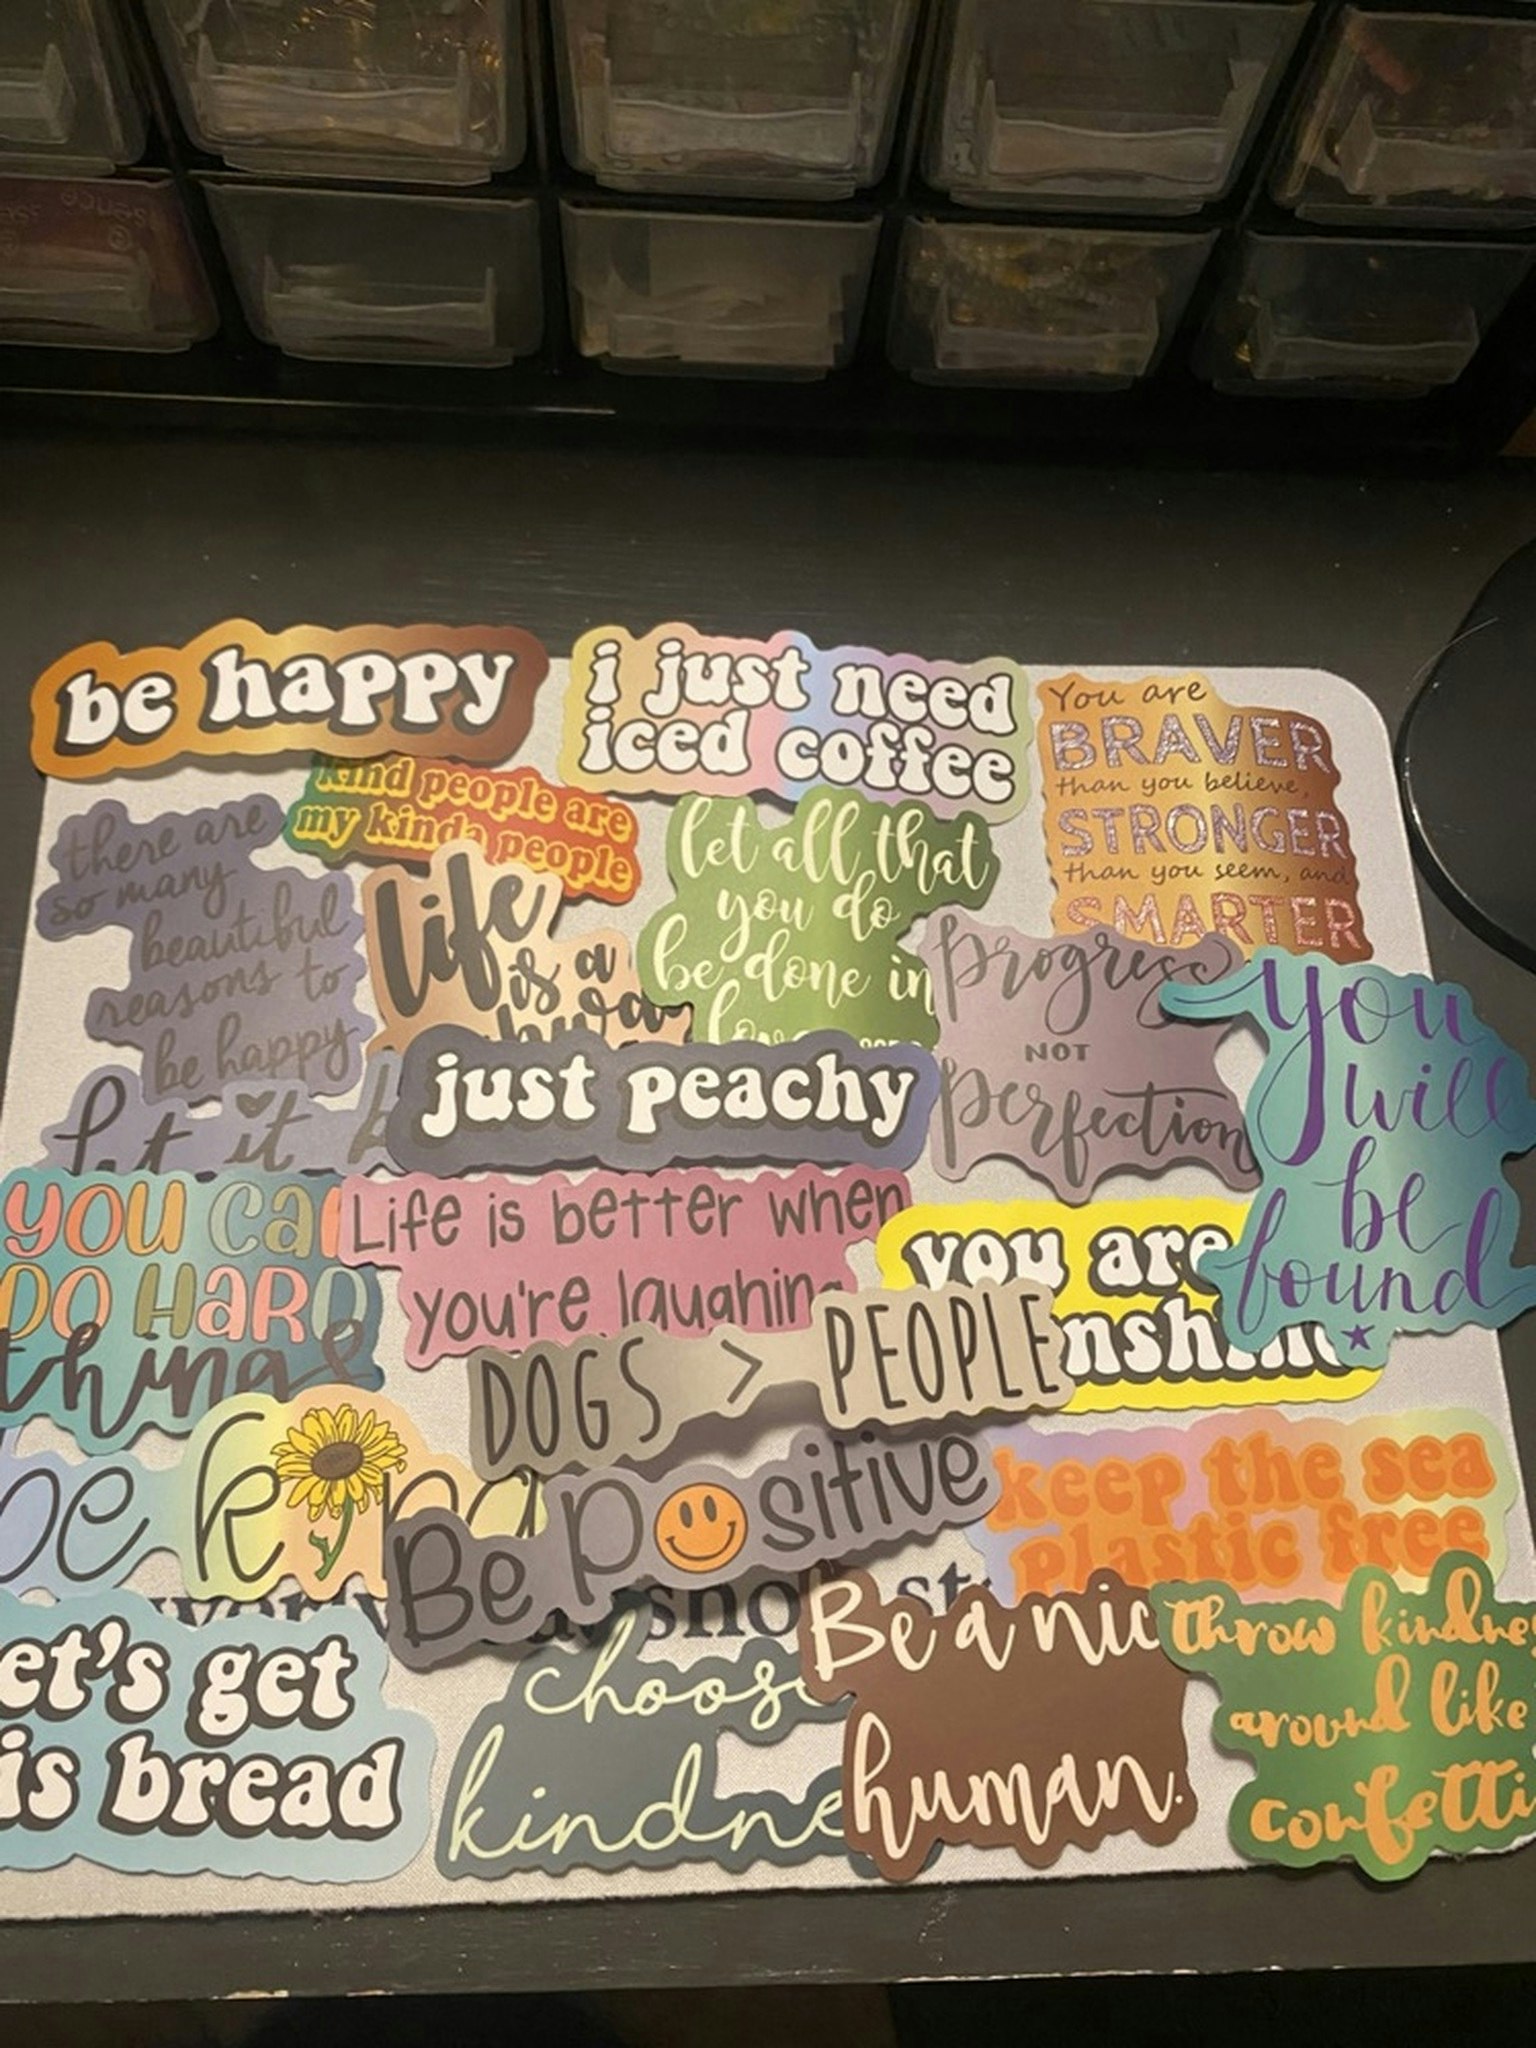 be happy
i just need
iced coffee
You are
BRAVER
than you believe,
STRONGER
than you seem, and
SMARTER
kind people are
my kinda people
there are
so many
beautiful
reasons to
be happy
life
is a
let all that
you do
be done in
love
progress
NOT
perfection
you
will
be
found
let it
just peachy
you can
DO HARD
things
Life is better when
you're laughing
you are
DOGS > PEOPLE
be kind
Be positive
keep the sea
plastic free
let's get
bread
choose
Be a
human.
throw
around like
confetti